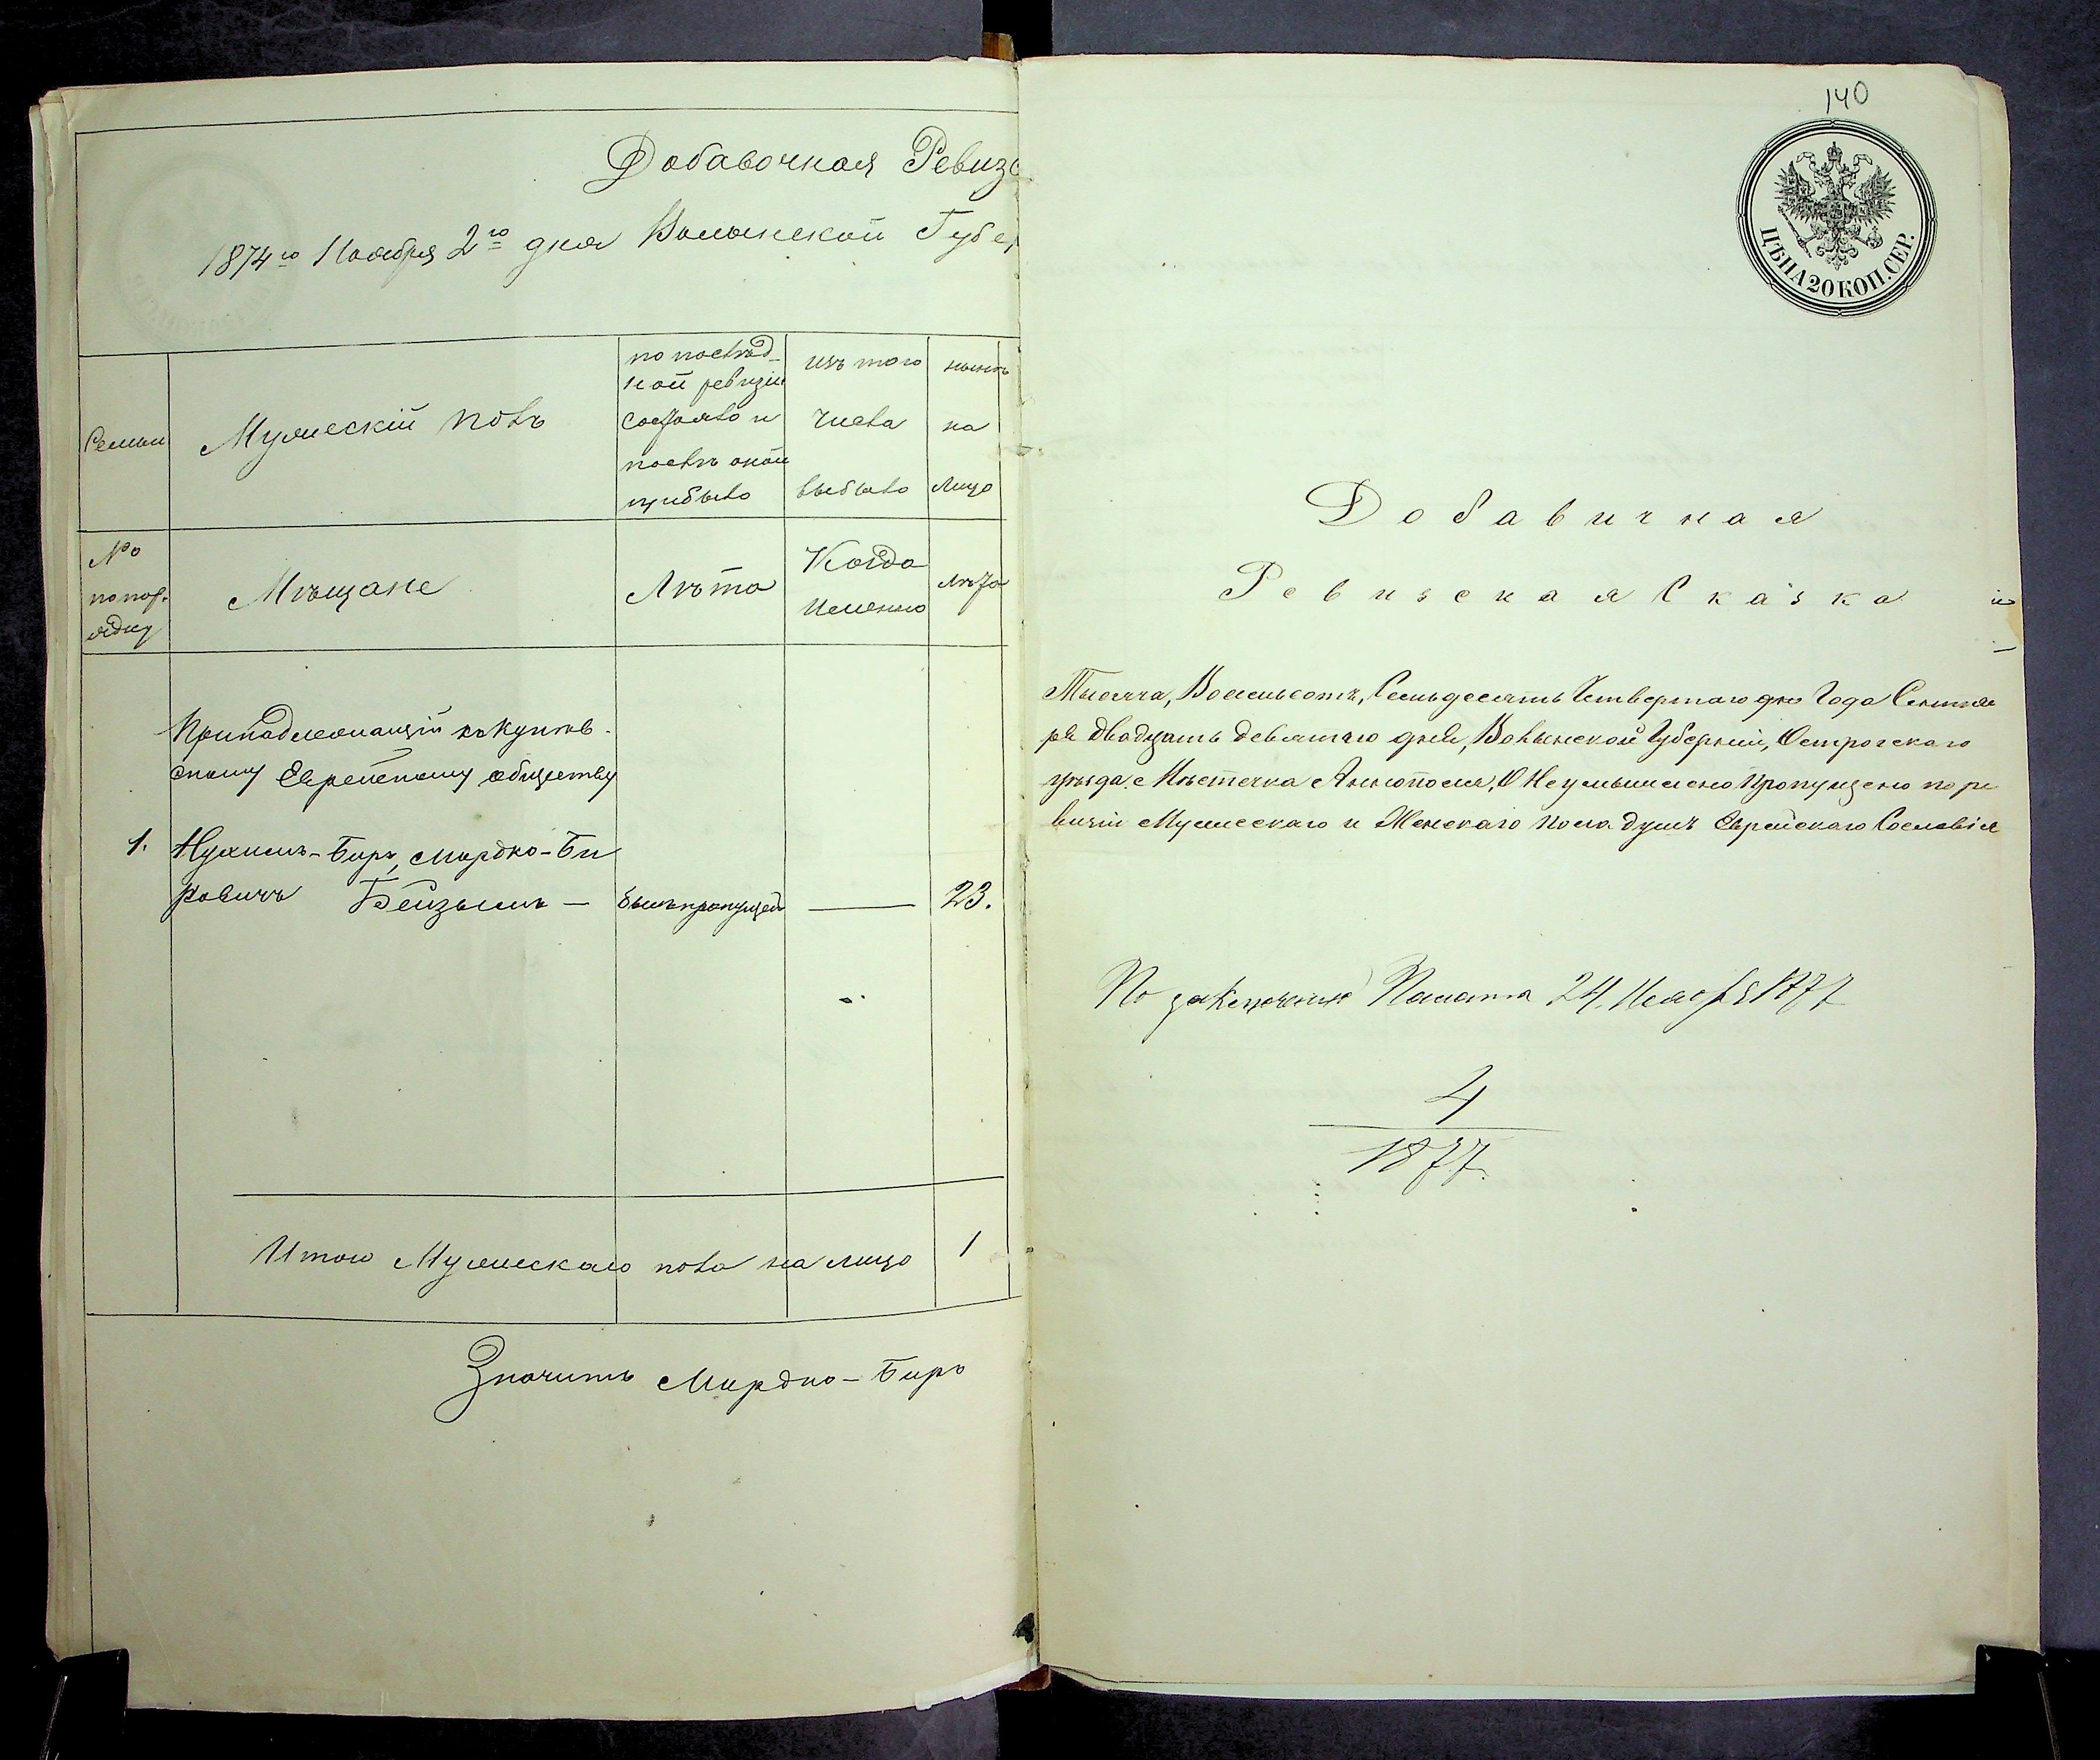 Добавочная Ревиз
1874го Ноября 2го дня Волынской Губер
Семьи
Мужескій полъ
по послѣд-
ной ревизіи
состояло и
послѣ оной
прибыло
изъ того
числа
выбыло
нынѣ
на
лицо
№
по пор-
ядку
Мѣщане
Лѣта
Когда
Именно
Лѣта
Принадлежащій къ Купев-
скому Еврейскому обществу
1. Нухимъ-Беръ, Мордко-Бе
ровичъ Бейзымъ — былъ пропущенъ — 23.
Итого Мужескаго пола на лицо 1
Значитъ Мордко-Беръ
140
ЦѢНА 20 КОП. СЕР.
Добавичная
Ревизская Сказка
Тысяча, Восемьсотъ, Семьдесятъ Четвертаго дня Года Сентяб
ря двадцать девятаго дня, Волынской Губерніи, Острогскаго
уѣзда. Мѣстечка Аннополя, О Неумышлено пропущено по ре
визіи Мужескаго и Женскаго пола душъ Еврейскаго Сословія
По заключенію Палаты 24. Ноября 1877
4
1877.